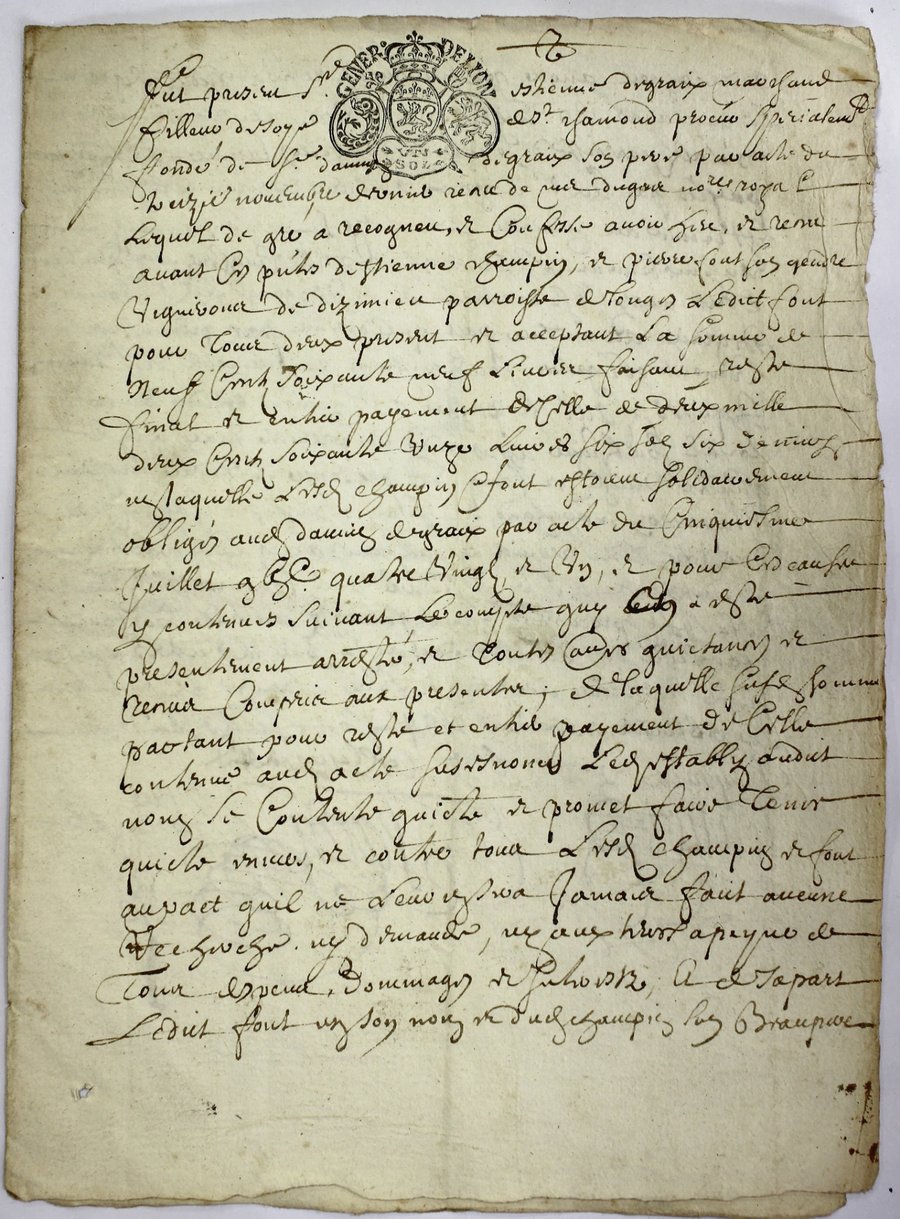 GENER. DE LYON
UN SOL
2
Fut present Sr. estienne degraix marchand
filleur de soye de St. chamond procur specialem.t
fondé de Sr. damien degraix son pere par acte du
novembre dernier receu de me dugas no.re royal
Lequel de gré a recogneu, et Confesse avoir heu, et receu
avant Ces pntes destienne champin, et pierre font son gendre
Vigneronz de dizimieu parroisse de Longes Ledict font
pour Tous deux present et acceptant La somme de
Neuf Centz soixante neuf Livres faisant reste
final et entier payement de Celle de deux mille
deux Centz soixante Unze Livres six solz six deniers
en laquelle Lesd. champin et font estoient solidairement
obligés aud. damien degraix par acte du Cinquiesme
Juillet quatre Vingt, et Un, et pour Les causes
y contenues suivant Le compte quy a esté
presentement arresté, et Toutes au.es quictances et
receus Compris aux presentes, de laquelle susd. somme
partant pour reste et entier payement de Celle
contenue aud. acte Led. estably audit
nom se Contente quicte et promet faire Tenir
quicte envers, et contre tous Lesd. champin et font
au pact quil ne Leur en sera Jamais faict aucune
Recherche ny demande, ny aux leurs a peyne de
Tous despens, dommages et Interestz, Et de sa part
Ledict font en son nom et dud. champin son Beaupere